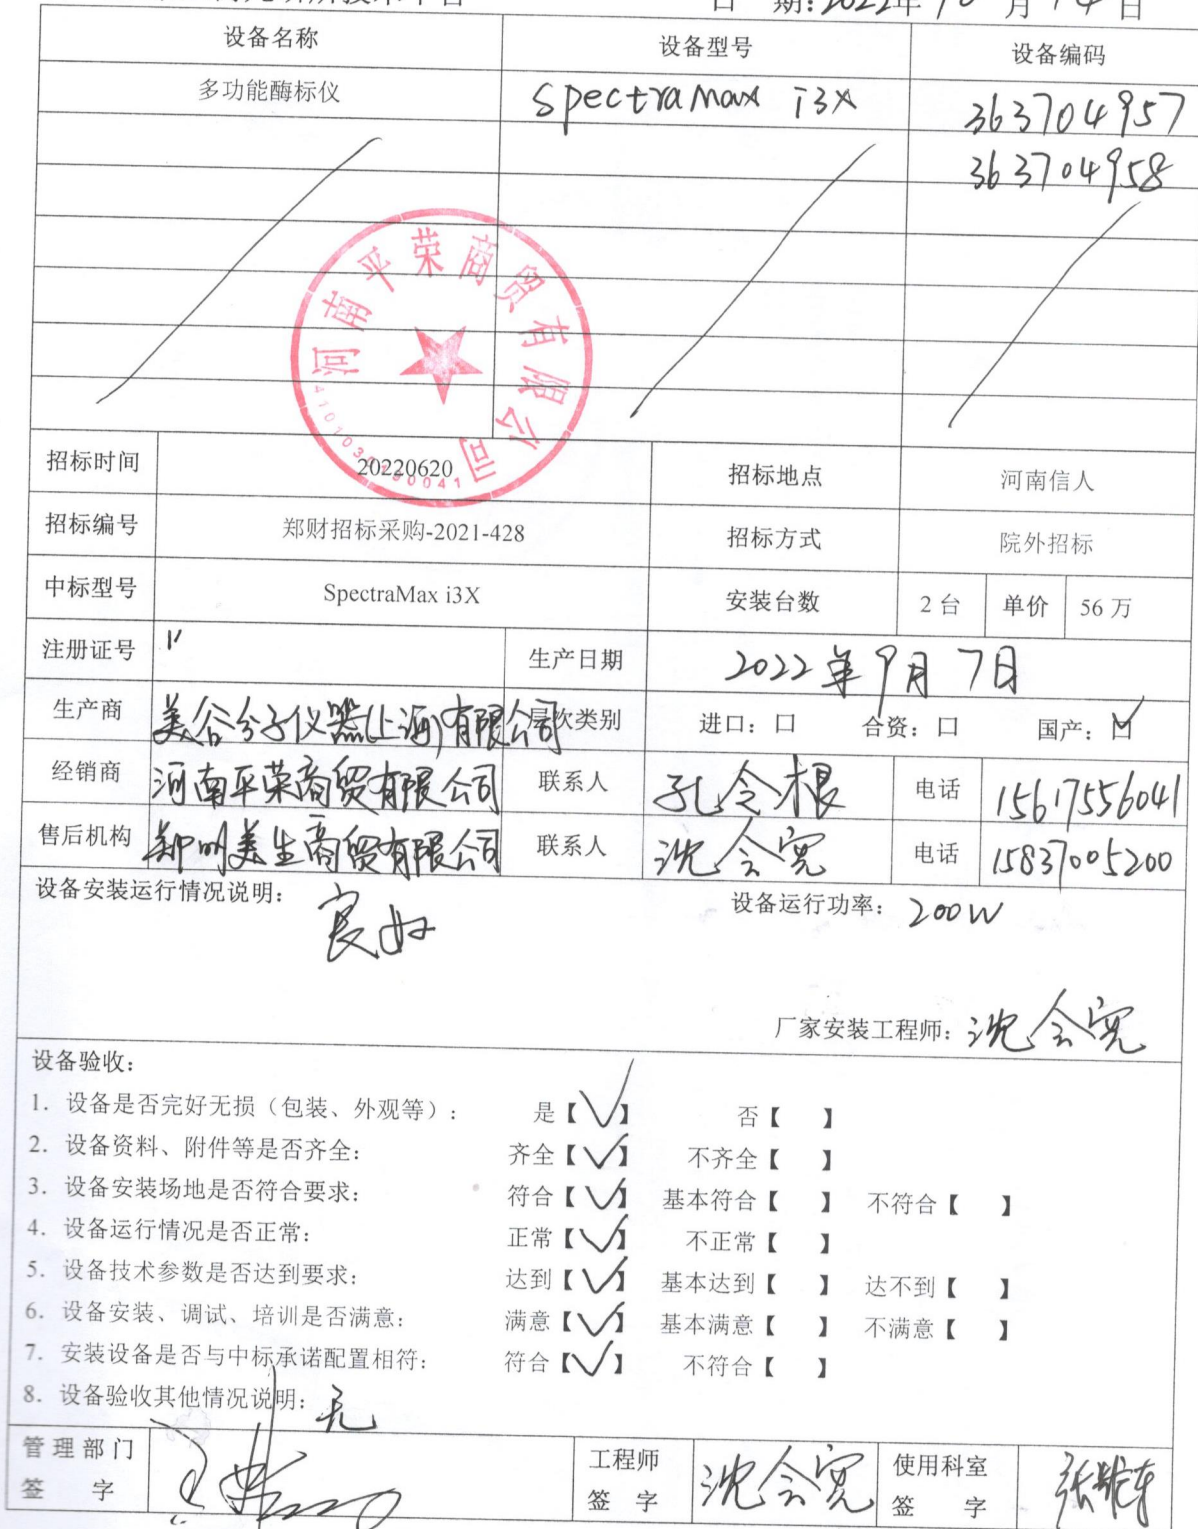 日 期：2022年10月14日
设备名称 设备型号 设备编码
多功能酶标仪 SpectraMax i3X 363704957
363704958
河南平荣商贸有限公司
招标时间 20220620 招标地点 河南信人
招标编号 郑财招标采购-2021-428 招标方式 院外招标
中标型号 SpectraMax i3X 安装台数 2 台 单价 56 万
注册证号 生产日期 2022年9月7日
生产商 美谷分子仪器(上海)有限公司 层次类别 进口：口 合资：口 国产：☑
经销商 河南平荣商贸有限公司 联系人 孔令根 电话 15617556041
售后机构 郑州美生商贸有限公司 联系人 沈会宽 电话 15837005200
设备安装运行情况说明： 良好 设备运行功率： 200W
厂家安装工程师：沈会宽
设备验收：
1. 设备是否完好无损（包装、外观等）： 是【√】 否【 】
2. 设备资料、附件等是否齐全： 齐全【√】 不齐全【 】
3. 设备安装场地是否符合要求： 符合【√】 基本符合【 】 不符合【 】
4. 设备运行情况是否正常： 正常【√】 不正常【 】
5. 设备技术参数是否达到要求： 达到【√】 基本达到【 】 达不到【 】
6. 设备安装、调试、培训是否满意： 满意【√】 基本满意【 】 不满意【 】
7. 安装设备是否与中标承诺配置相符： 符合【√】 不符合【 】
8. 设备验收其他情况说明：无
管理部门 工程师 使用科室
签 字 签 字 沈会宽 签 字